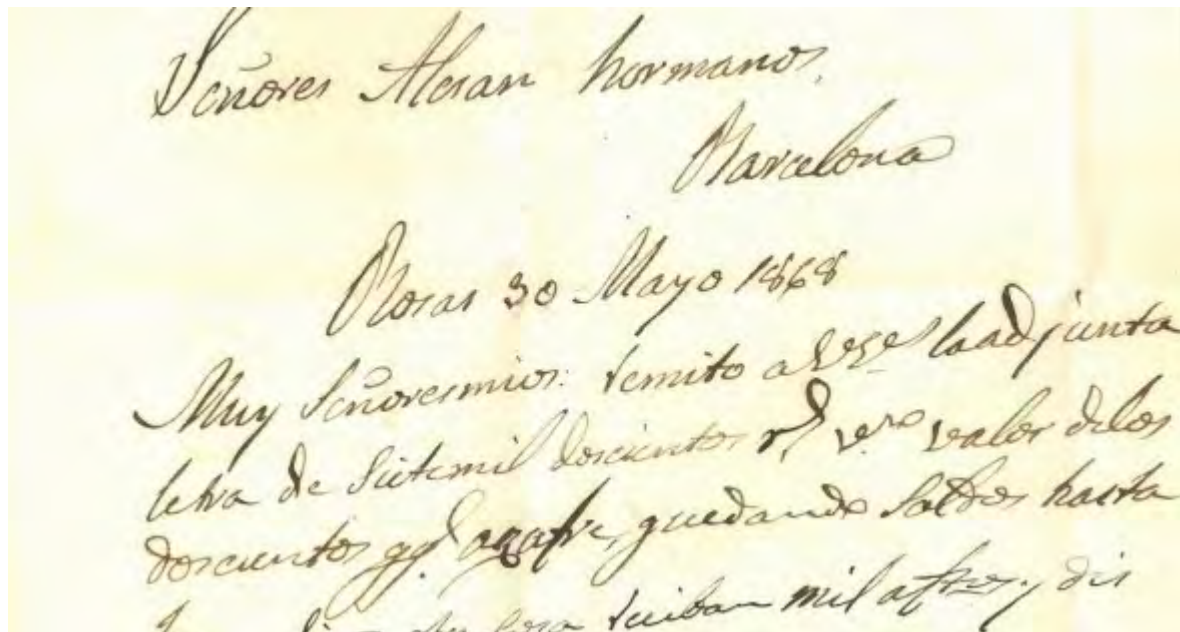 Señores Alesan hermanos,
Barcelona
Rosas 30 Mayo 1868
Muy Señores mios: remito a la adjunta
letra de Siete mil doscientos rs valor de los
doscientos qq azufre, quedando Saldos hasta
reciban mil afros. y dis